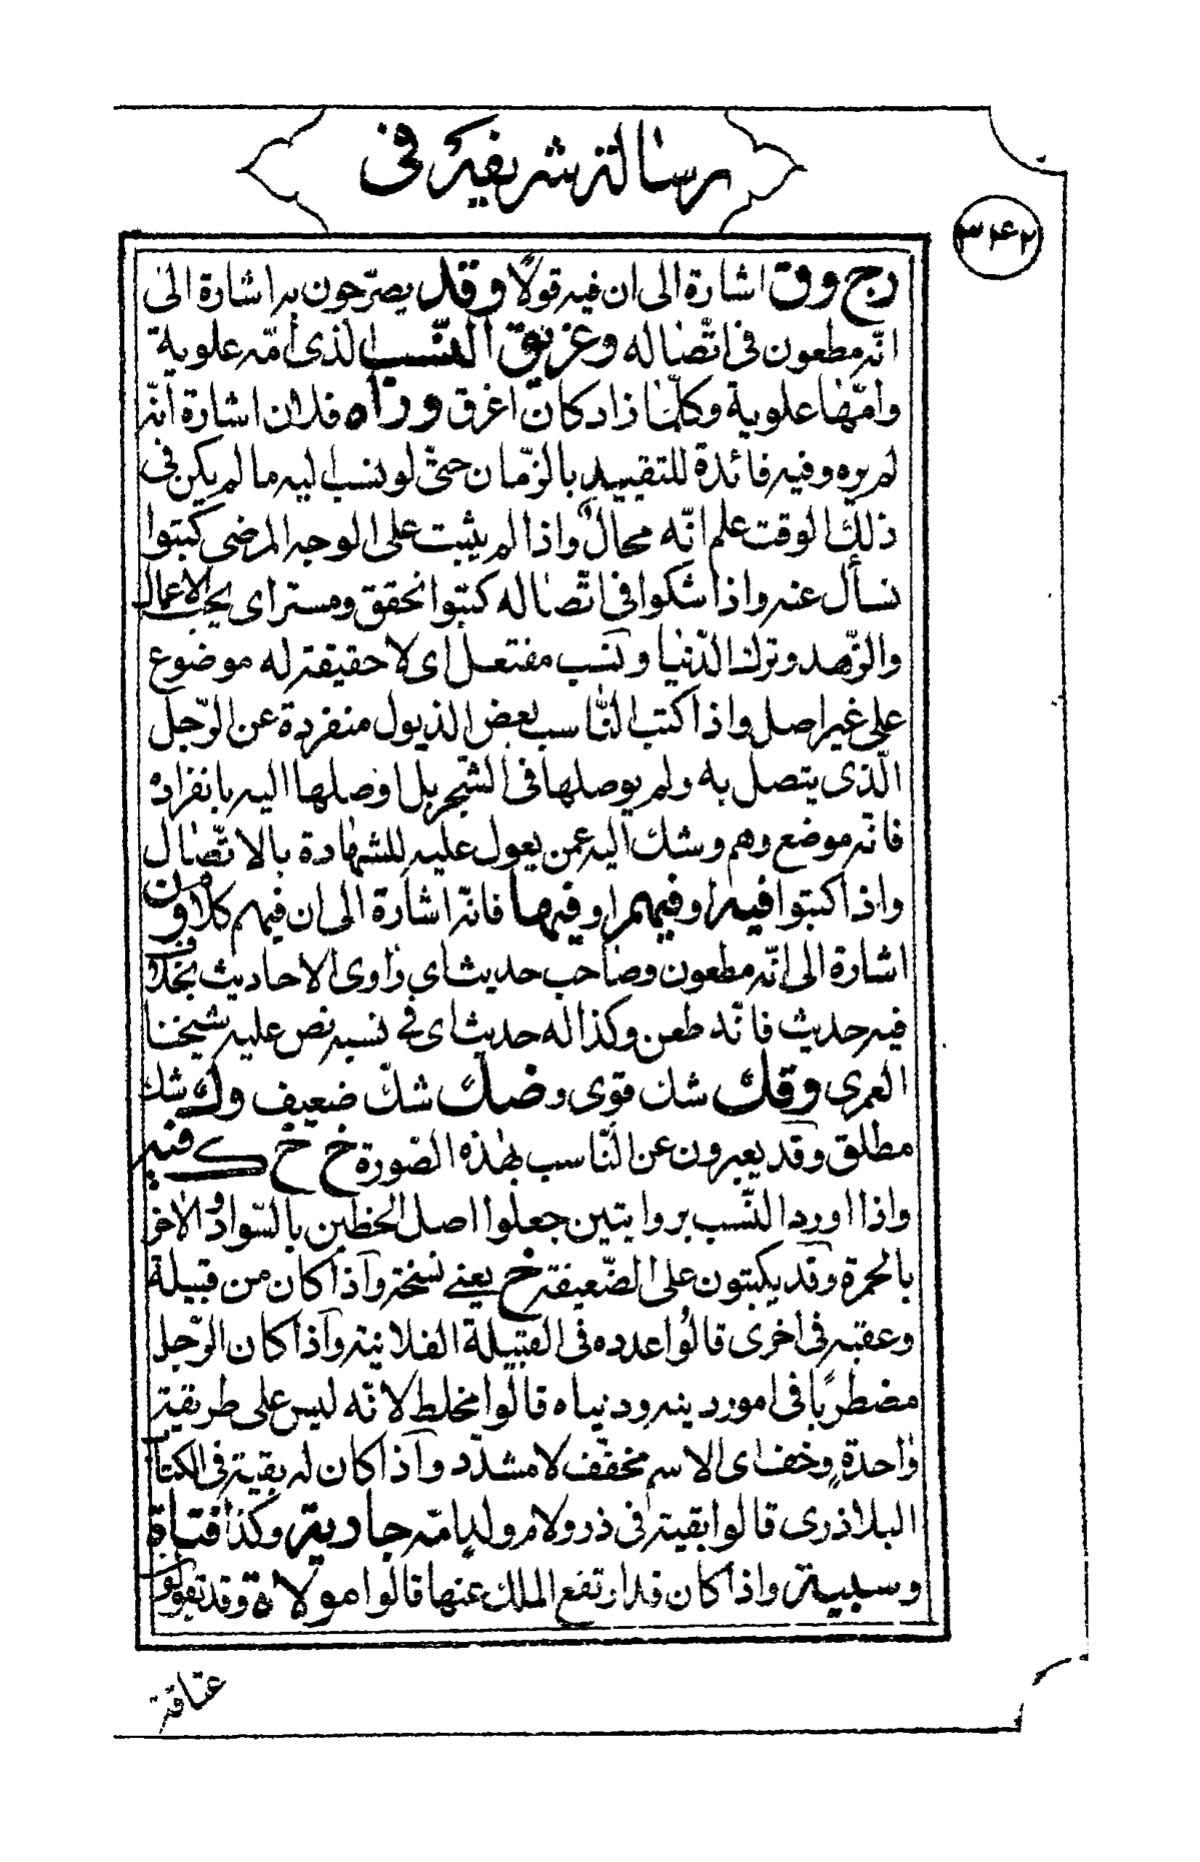 رسالة شريفة في
٣٤٢
رج وق اشارة الى ان فيه قولًا وقد يصرّحون به اشارة الى
انّه مطعون فى اتّصاله وعريق النّسب الذى أمّه علوية
وامّها علوية وكلّما زاد كان اغرق وراه فلان اشارة أنّه
لم يره وفيه فائدة للتقييد بالزّمان حتّى لو نسب اليه ما لم يكن فى
ذلك الوقت علم انّه محال واذا لم يثبت على الوجه المرضى كتبوا
نسأل عنه واذا شكوا فى اتّصاله كتبوا نحقق ومستر اى يحب الاعمال
والزّهد وترك الدّنيا ونسب مفتعل اى لا حقيقة له موضوع
على غير اصل واذا كتب النّاسب بعض الذيول منفردة عن الرّجل
الّذى يتصل به ولم يوصلها فى الشّجر بل اوصلها اليه بانفراده
فانّه موضع وهم وشك اليه عمن يعول عليه للشهادة بالاتّصال
واذا كتبوا فيه او فيهم او فيها فانّه اشارة الى ان فيهم كلاما ون
اشارة الى انّه مطعون وصاحب حديث اى راوى الاحاديث بخلاف
فيه حديث فانّه طعن وكذا له حديث اى فى نسبه نص عليه شيخنا
العمرى وقك شك قوى وضك شكّ ضعيف وك شك
مطلق وقد يعبرون عن النّاسب بهذه الصورة خ خ ك فنبه
واذا اورد النّسب بروايتين جعلوا اصل الخطين بالسّواد والاخر
بالحمرة وقد يكتبون على الضّعيفة خ يعنى نسخة واذا كان من قبيلة
وعقبه فى اخرى قالوا عدده فى القبيلة الفلانية واذا كان الرّجل
مضطربًا فى امور دينه ودنياه قالوا مخلط لانّه ليس على طريقة
واحدة وخف اى الاسم مخفّف لا مشدّد واذا كان له بقية فى الكتاب
البلاذرى قالوا بقية فى ذر ولام ولد امّه جادية وكذا فتاة
وسبية واذا كان قد ارتفع الملك عنها قالوا مولاة وقد تقولوا
عتاقة